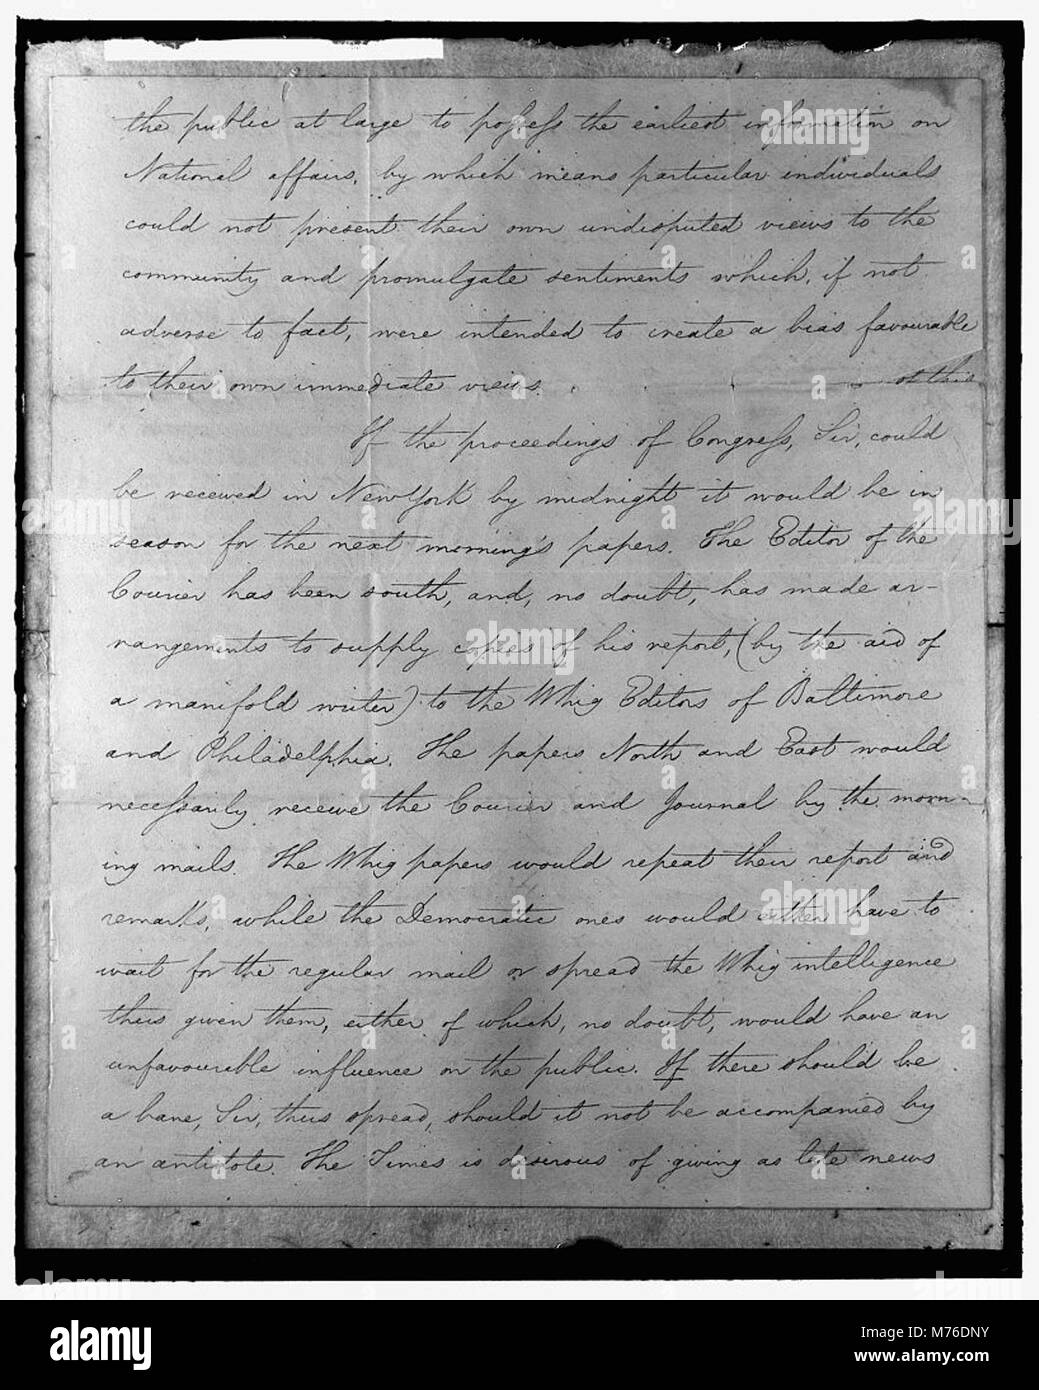 the public at large to possess the earliest information on
National affairs, by which means particular individuals
could not present their own undisputed views to the
community and promulgate sentiments which, if not
adverse to fact, were intended to create a bias favourable
to their own immediate views.
If the proceedings of Congress, Sir, could
be received in New York by midnight it would be in
season for the next morning's papers. The Editor of the
Courier has been south, and, no doubt, has made ar-
rangements to supply copies of his report, (by the aid of
a manifold writer) to the Whig Editors of Baltimore
and Philadelphia. The papers North and East would
necessarily receive the Courier and Journal by the morn-
ing mails. The Whig papers would repeat their report and
remarks, while the Democratic ones would either have to
wait for the regular mail or spread the Whig intelligence
thus given them, either of which, no doubt, would have an
unfavourable influence on the public. If there should be
a bane, Sir, thus spread, should it not be accompanied by
an antidote. The Times is desirous of giving as late news
alamy
Image ID: M76DNY
www.alamy.com